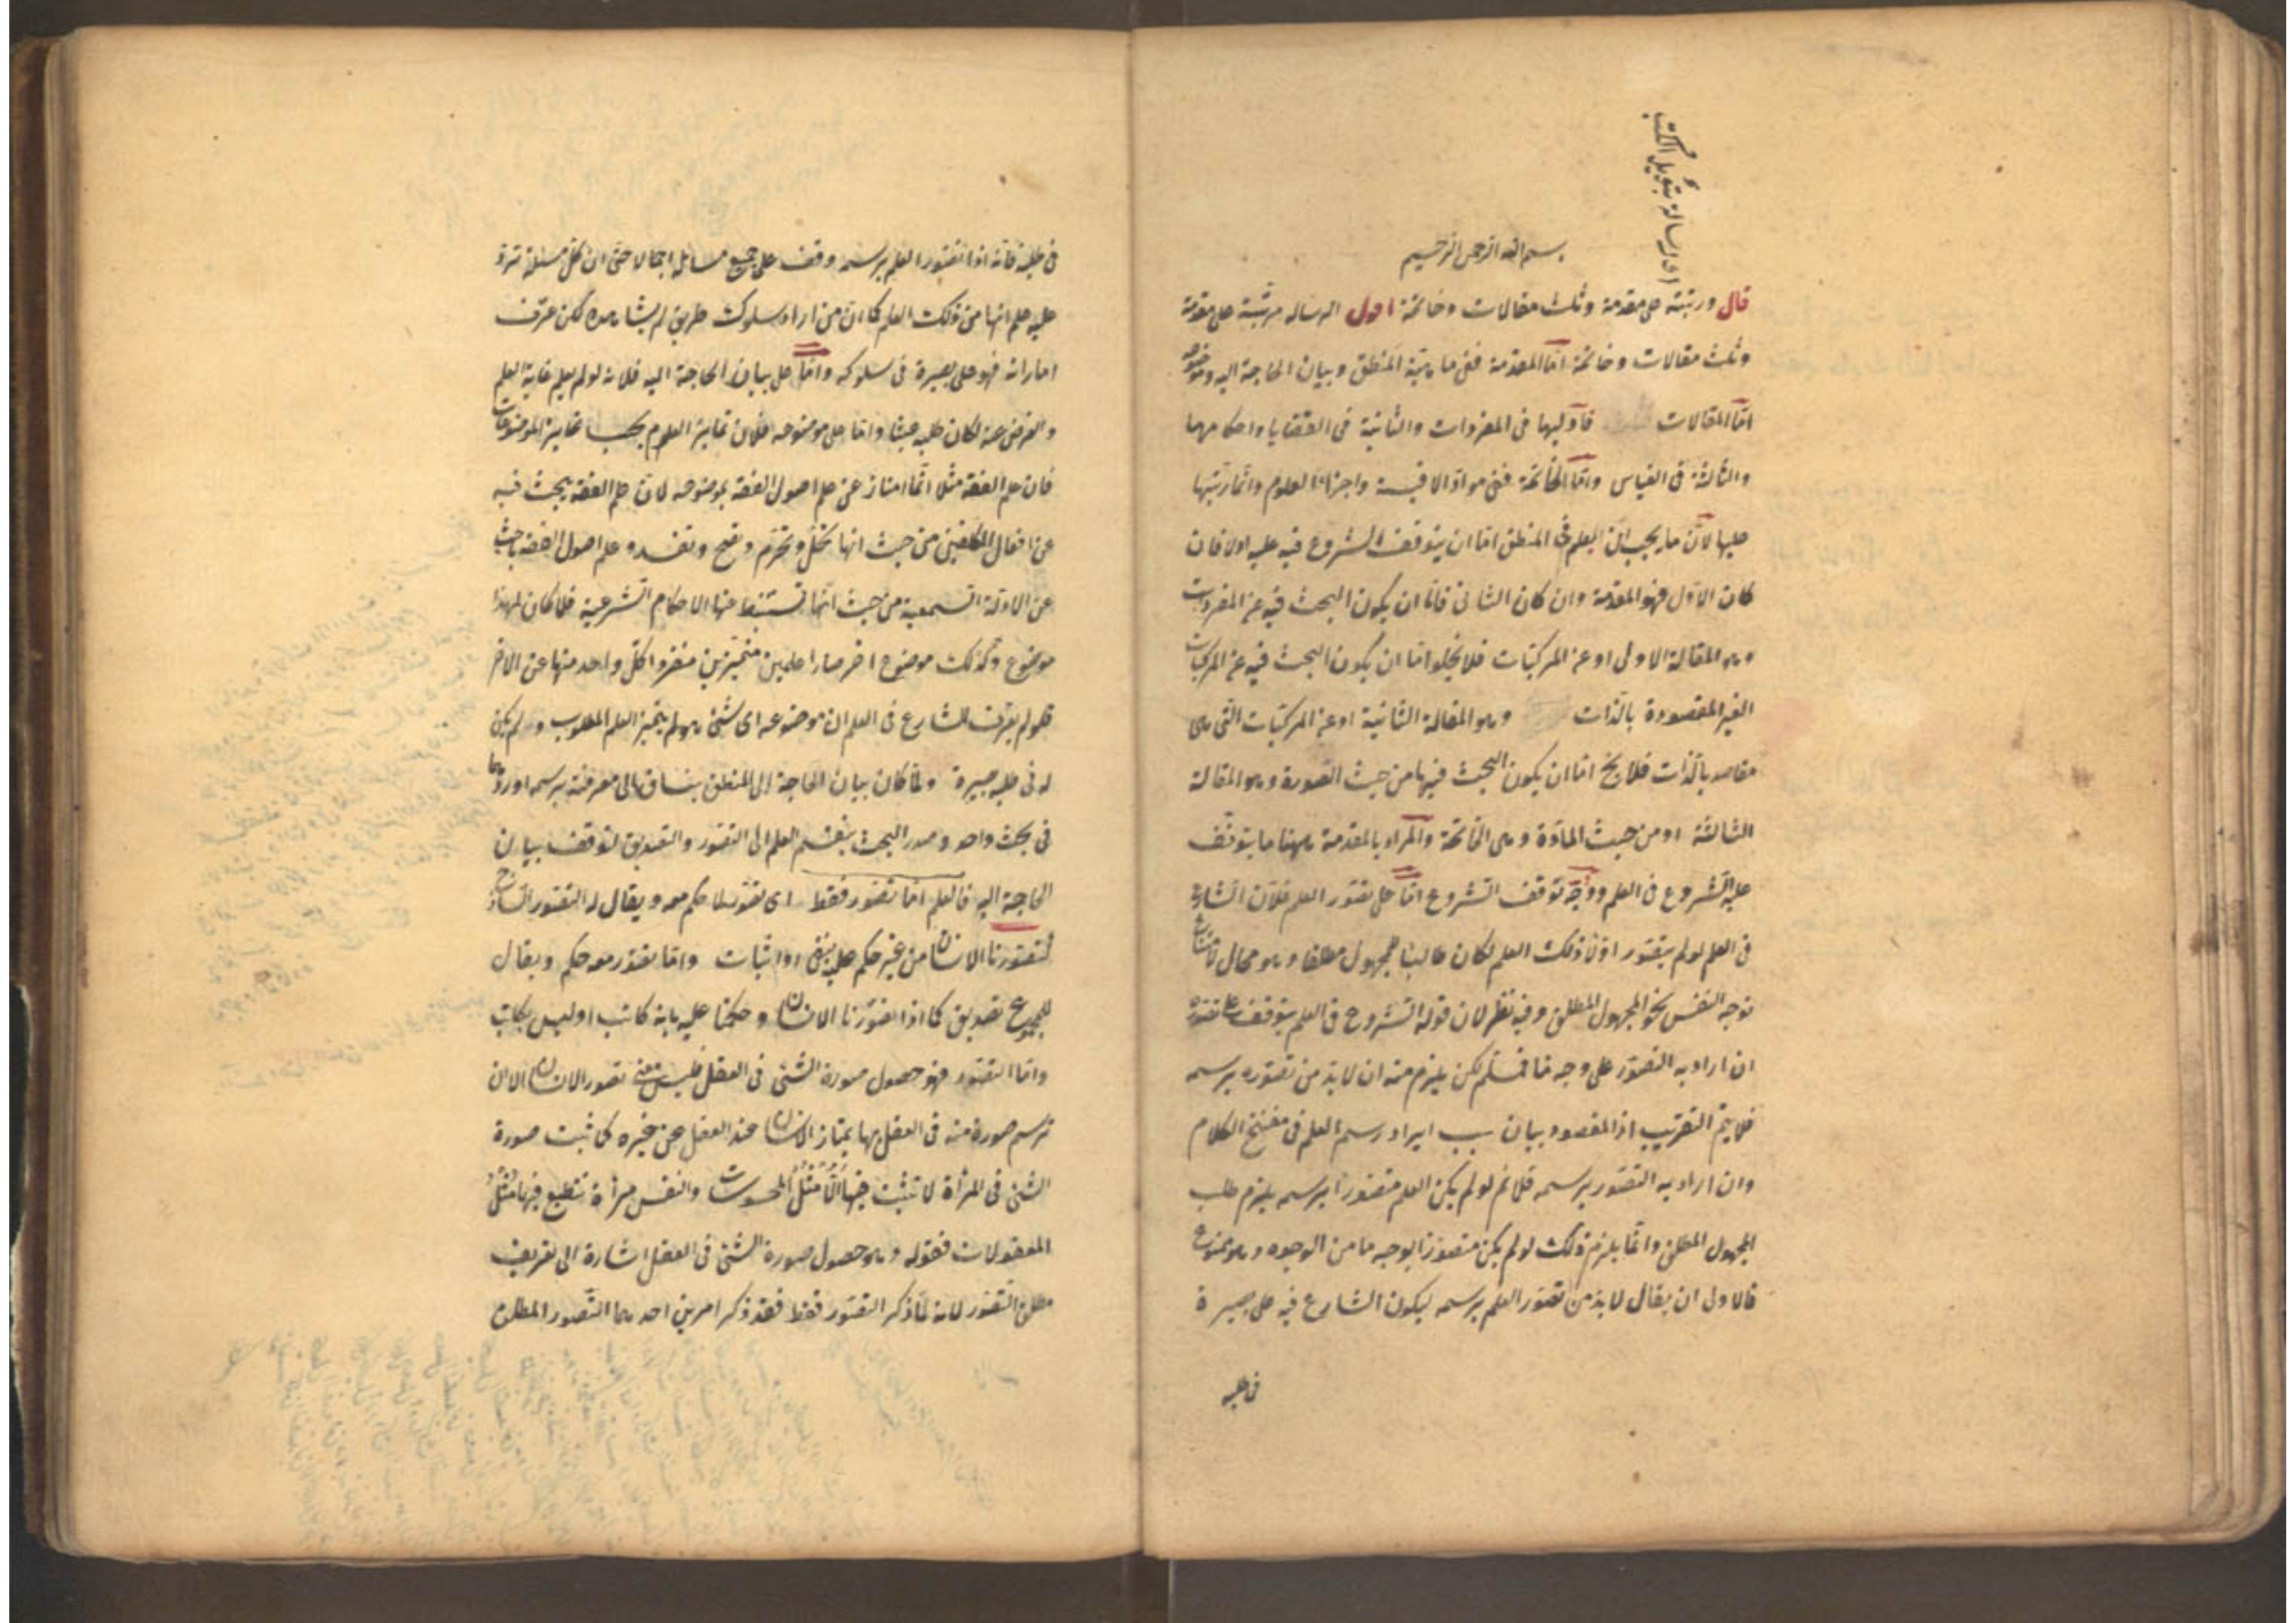 اى الرسالة بتأويل الكتب
بسم الله الرحمن الرحيم
قال ورتبته على مقدمة وثلث مقالات وخاتمة اقول الرساله مرتبة على مقدمة
وثلث مقالات وخاتمة امّا المقدمة ففى ماهيّة المنطق وبيان الحاجة اليه وموضوعه
امّا المقالات فاوليها فى المفردات والثانية فى القضايا واحكامها
والثالثة فى القياس وامّا الخاتمة ففى موادّ الاقيسة واجزاء العلوم وانّما رتّبها
عليها لانّ ما يجب ان يعلم فى المنطق امّا ان يتوقف الشروع فيه عليه اولا فان
كان الاوّل فهو المقدمة وان كان الثانى فامّا ان يكون البحث فيه عن المفردات
وهو المقالة الاولى او عن المركبّات فلا يخلوا امّا ان يكون البحث فيه عن المركبات
الغير المقصودة بالذّات وهو المقالة الثانية او عن المركبّات التى هى
مقاصد بالذّات فلا يخ امّا ان يكون البحث فيها من حيث الصورة وهو المقالة
الثالثة او من حيث المادّة وهى الخاتمة والمراد بالمقدمة ههنا ما يتوقّف
عليه الشروع فى العلم ووجه توقف الشروع امّا على تصّور العلم فلانّ الشارع
فى العلم لو لم يتصّور اوّلا ذلك العلم لكان طالبا للمجهول مطلقا وهو محال لامتناع
توجه النفس نحو المجهول المطلق وفيه نظر لان قوله الشروع فى العلم يتوقف على تصوره
ان اراد به التصّور على وجه مّا فمسّلم لكن يلزم منه ان لا بدّ من تصّوره برسمه
فلا يتم التقريب اذ المقصود بيان سبب ايراد رسم العلم فى مفتتح الكلام
وان اراد به التصّور برسمه فلا نم لو لم يكن العلم متصّورا برسمه يلزم طلب
المجهول المطلق وانّما يلزم ذلك لو لم يكن متصوّرا بوجه ما من الوجوه وهو ممنوع
فالاولى ان يقال لا بدّ من تصّور العلم برسمه ليكون الشارع فيه على بصيرة
فى طلبه
فى طلبه فانّه اذا تصّور العلم برسمه وقف على جميع مسائله اجمالا حتى ان كلّ مسئلة ترد
عليه علم انها من ذلك العلم كما ان من اراد سلوك طريق لم يشاهده لكن عرف
اماراته فهو على بصيرة فى سلوكه وامّا على بيان الحاجة اليه فلانه لو لم يعلم غاية العلم
والغرض عنه لكان طلبه عبثا وامّا على موضوعه فلانّ تمايز العلوم بحسب تمايز الموضوعات
فان علم الفقه مثلا انّما امتاز عن علم اصول الفقه بموضوعه لانّ علم الفقه يبحث فيه
عن افعال المكلفين من حيث انها تحلّ وتحرّم وتصح وتفسد وعلم اصول الفقه باحث
عن الادلّة السمعية من حيث انّها تستنبط عنها الاحكام الشرعية فلما كان لهذا
موضوع ولذلك موضوع اخر صارا علمين متميّزين منفردا كلّ واحد منها عن الاخر
فلو لم يعرف الشارع فى العلم ان موضوعه اى شئ هو لم يتميّز العلم المطلوب ولم يكن
له فى طلبه بصيرة ولمّا كان بيان الحاجة الى المنطق ينساق الى معرفته برسمه اوردهما
فى بحث واحد وصدر البحث بتقسيم العلم الى التصّور والتصديق لتوقف بيان
الحاجة اليه فالعلم امّا تصّور فقط اى تصّور لا حكم معه ويقال له التصّور الساذج
كتصّورنا الانسان من غير حكم عليه بنفى او اثبات وامّا تصّور معه حكم ويقال
للمجموع تصديق كما اذا تصّورنا الانسان وحكمنا عليه بانه كاتب او ليس بكاتب
وامّا التصّور فهو حصول صورة الشئ فى العقل فليس معنى تصور الانسان الا ان
ترسم صورة منه فى العقل بها يمتاز الانسان عند العقل عن غيره كما ثبت صورة
الشئ فى المرآة لا تثبت فيها الّا مُثُلُ المحسوسات والنفس مرآة تنطبع فيها مُثُلُ
المعقولات فقوله وهو حصول صورة الشئ فى العقل اشارة الى تعريف
مطلق التصّور لانه لمّا ذكر التصّور فقط فقد ذكر امرين احدهما التّصور المطلق